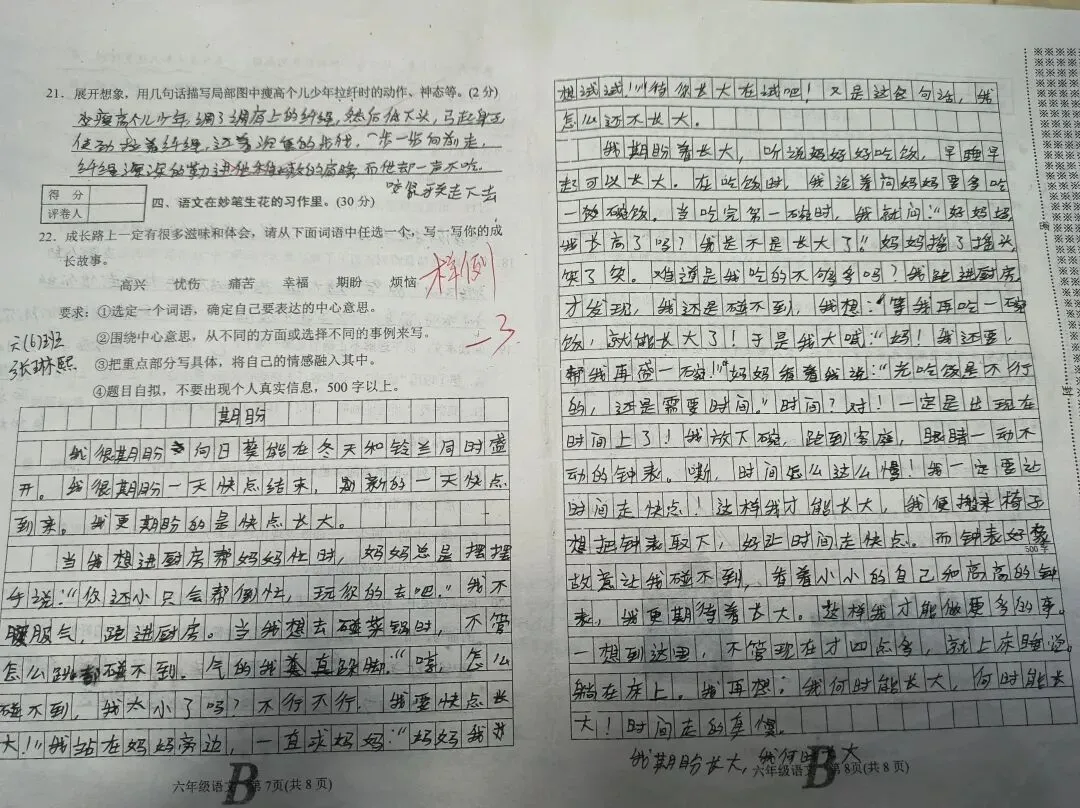 21. 展开想象，用几句话描写局部图中瘦高个儿少年拉纤时的动作、神态等。(2 分)
瘦高个儿少年调了调肩上的纤绳，然后低下头，弓起身子
使劲拉着纤绳，迈着沉重的步伐，一步一步向前走，
纤绳深深的勒进他稚嫩的肩膀，而他却一声不吭。
咬紧牙关走下去
得 分
评卷人
四、语文在妙笔生花的习作里。(30 分)
22. 成长路上一定有很多滋味和体会，请从下面词语中任选一个，写一写你的成
长故事。
高兴 忧伤 痛苦 幸福 期盼 烦恼
样例
要求：①选定一个词语，确定自己要表达的中心意思。
②围绕中心意思，从不同的方面或选择不同的事例来写。
③把重点部分写具体，将自己的情感融入其中。
④题目自拟，不要出现个人真实信息，500 字以上。
二3
六(6)班
张琳熙
期盼
我很期盼向日葵能在冬天和铃兰同时盛
开。我很期盼一天快点结束，崭新的一天快点
到来。我更期盼的是快点长大。
当我想进厨房帮妈妈忙时，妈妈总是摆摆
手说：“你还小只会帮倒忙，玩你的去吧。”我不
服气，跑进厨房。当我想去碰菜锅时，不管
怎么跳都碰不到。气的我直跺脚。“哼，怎么
碰不到，我太小了吗？不行不行，我要快点长
大！”我站在妈妈旁边，一直求妈妈：“妈妈我
六年级语文 B 第 7页(共 8 页)
想试试！”“待你长大在试吧！又是这句话，我
怎么还不长大。
我期盼着长大，听说妈妈好好吃饭，早睡早
起可以长大。在吃饭时，我追着问妈妈要多吃
一饭碗饭。当吃完第一碗时，我就问：“好妈妈，
我长高了吗？我是不是长大了！”妈妈摇了摇头
笑了笑。难道是我吃的不够多吗？我跑进厨房，
才发现，我还是碰不到，我想：“等我再吃一碗
饭，就能长大了！于是我大喊：“妈！我还要，
帮我再盛一碗！”妈妈看着我说：“光吃饭是不行
的，还是需要时间。”时间？对！一定是出现在
时间上了！我放下碗，跑到客庭，眼睛一动不
动的钟表。嘶，时间怎么这么慢！我一定要让
时间走快点！这样我才能长大，我便搬来椅子
想把钟表取下，好让时间走快点。而钟表好象
500 字
故意让我碰不到，看着小小的自己和高高的钟
表，我更期待着长大。这样我才能做更多的事。
一想到这里，不管现在才四点多，就上床睡觉。
躺在床上。我再想：我何时能长大，何时能长
大！时间走的真慢。
我期盼长大，我何时长大
六年级语文 B 第 8页(共 8 页)
封